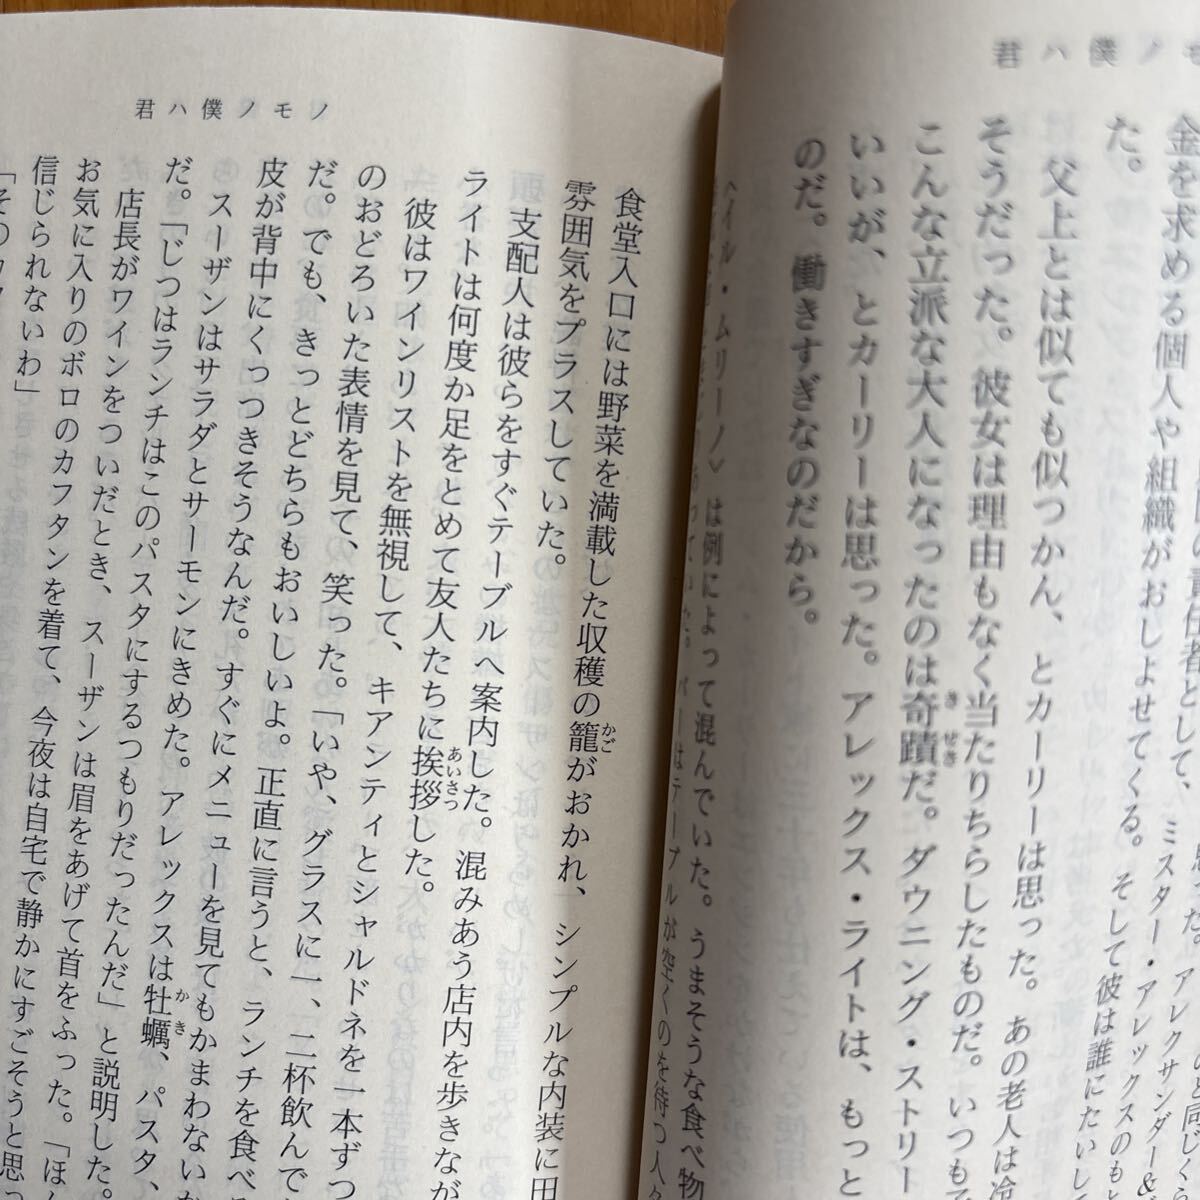 君ハ僕ノモ
金を求める個人や組織がおしよせてくる。そして彼は誰にたいし
た。
父上とは似ても似つかん、とカーリーは思った。あの老人は冷
そうだった。彼女は理由もなく当たりちらしたものだ。いつも
こんな立派な大人になったのは奇蹟だ。ダウニング・ストリー
いいが、とカーリーは思った。アレックス・ライトは、もっと
のだ。働きすぎなのだから。
〈イル・ムリーノ〉は例によって混んでいた。うまそうな食べ物
君ハ僕ノモノ
食堂入口には野菜を満載した収穫の籠がおかれ、シンプルな内装に田
雰囲気をプラスしていた。
支配人は彼らをすぐテーブルへ案内した。混みあう店内を歩きなが
ライトは何度か足をとめて友人たちに挨拶した。
彼はワインリストを無視して、キアンティとシャルドネを一本ずつ
のおどろいた表情を見て、笑った。「いや、グラスに一、二杯飲んで
だ。でも、きっとどちらもおいしいよ。正直に言うと、ランチを食べ
皮が背中にくっつきそうなんだ。すぐにメニューを見てもかまわない
スーザンはサラダとサーモンにきめた。アレックスは牡蠣、パスタ、
だ。「じつはランチはこのパスタにするつもりだったんだ」と説明した。
店長がワインをついだとき、スーザンは眉をあげて首をふった。「ほん
お気に入りのボロのカフタンを着て、今夜は自宅で静かにすごそうと思っ
信じられないわ」